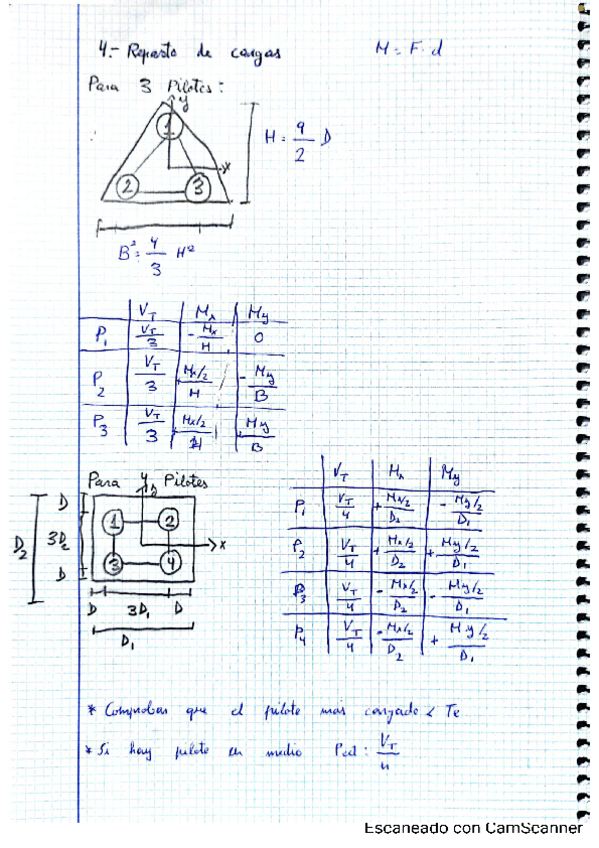 4.- Reparto de cargas M = F. d
Para 3 Pilotes:
y
1
x
2 3
H = 9/2 D
B² = 4/3 H²
V_T M_x M_y
P_1 V_T/3 - M_x/H 0
P_2 V_T/3 M_x/2/H - M_y/B
P_3 V_T/3 M_x/2/H M_y/B
Para 4 Pilotes
y
1 2
x
3 4
D
D_2 3D_2
D
D 3D_1 D
D_1
V_T M_x M_y
P_1 V_T/4 + M_x/2/D_2 - M_y/2/D_1
P_2 V_T/4 + M_x/2/D_2 + M_y/2/D_1
P_3 V_T/4 - M_x/2/D_2 - M_y/2/D_1
P_4 V_T/4 - M_x/2/D_2 + M_y/2/D_1
* Comprobar que el pilote mas cargado < Te
* Si hay pilote en medio : V_T/n
Escaneado con CamScanner